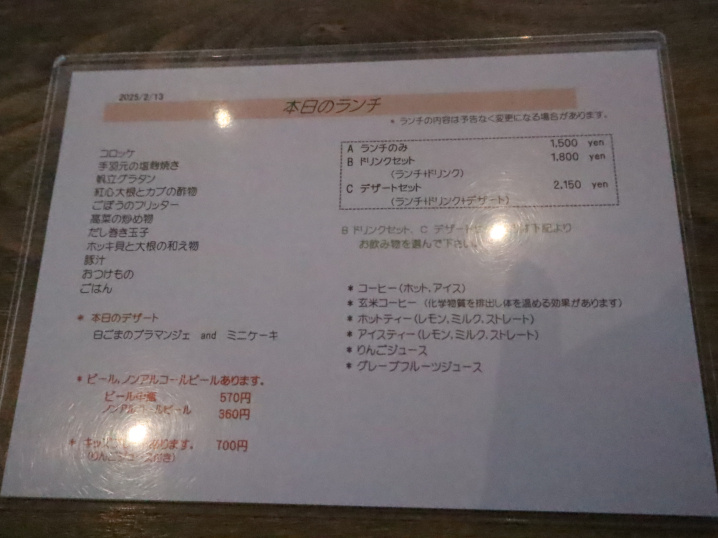 2025/2/13
本日のランチ
* ランチの内容は予告なく変更になる場合があります。
コロッケ
手羽元の塩麹焼き
帆立グラタン
紅心大根とカブの酢物
ごぼうのフリッター
高菜の炒め物
だし巻き玉子
ホッキ貝と大根の和え物
豚汁
おつけもの
ごはん
* 本日のデザート
白ごまのブラマンジェ and ミニケーキ
* ビール、ノンアルコールビールあります。
ビール中瓶 570円
ノンアルコールビール 360円
* キッ あります。 700円
(りんごジュース付き)
A ランチのみ 1,500 yen
B ドリンクセット 1,800 yen
(ランチ+ドリンク)
C デザートセット 2,150 yen
(ランチ+ドリンク+デザート)
B ドリンクセット、C デザート は下記より
お飲み物を選んで下さい。
* コーヒー(ホット、アイス)
* 玄米コーヒー (化学物質を排出し体を温める効果があります)
* ホットティー(レモン、ミルク、ストレート)
* アイスティー(レモン、ミルク、ストレート)
* りんごジュース
* グレープフルーツジュース